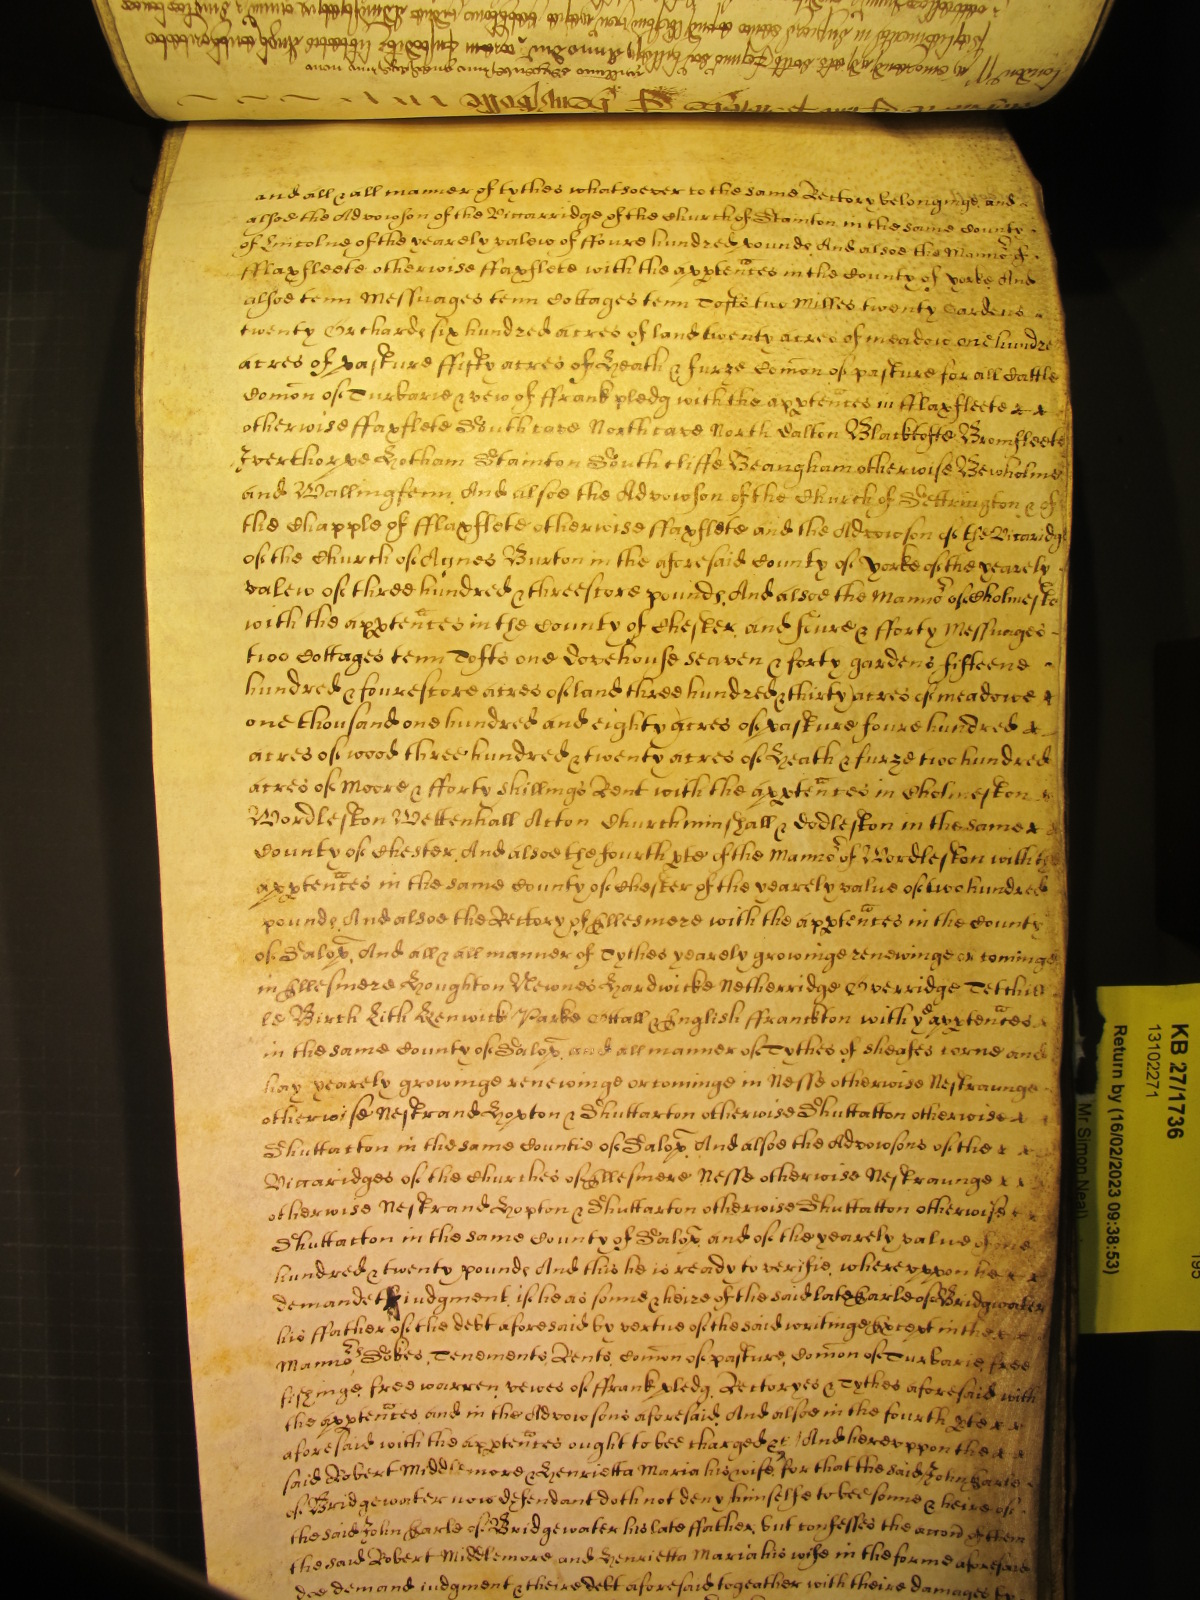 and all & all manner of tythes whatsoever to the same Rectory belonginge and
alsoe the Advowson of the Viccarridge of the Church of Stainton in the same County
of Lincolne of the yearely valew of ffoure hundred pounds And alsoe the Mannor of
fflaxfleete otherwise ffaxflete with the apptences in the County of Yorke And
alsoe tenn Messuages tenn Cottages tenn Tofts two Milles twenty Gardens
twenty Orchards six hundred acres of land twenty acres of meadow one hundre
acres of pasture ffifty acres of Heath & furze Comon of pasture for all Cattle
Comon of Turbarie & vew of ffrankpledg with the apptences in fflaxfleete
otherwise ffaxflete South cave North cave North Dalton Blacktofte Bromfleete
Iverthorpe Hotham Stainton South cliffe Beangham otherwise Bewholme
and Wallingfenn And alsoe the Advowson of the Church of Settrington & of
the Chapple of fflaxflete otherwise ffaxflete and the Advowson of the Viccaridg
of the Church of Agnes Burton in the aforesaid County of Yorke of the yearely
valew of three hundred & threescore pounds And alsoe the Mannor of Cholmeste
with the apptences in the County of Chester and ffoure & fforty Messuages
two Cottages tenn Tofts one Dovehouse seaven & forty gardens fifteene
hundred & fourescore acres of land three hundred & thirty acres of meadowe
one thousand one hundred and eighty acres of pasture foure hundred
acres of wood three hundred & twenty acres of Heath & furze two hundred
acres of Moore & fforty shillings Rent with the apptences in Cholmeston
Wordleston Wettenhall Acton Churchminshall & Dodleston in the same
County of Chester And alsoe the fourth pte of the Mannor of Wordleston with the
apptences in the same County of Chester of the yearely value of two hundred
pounds And alsoe the Rectory of Ellesmere with the apptences in the County
of Salop And all & all manner of Tythes yearely growinge renewinge or cominge
in Ellesmere Houghton Newnes Hardwicke Netherridge Overridge Tetchill
le Birch Lith Kenwick Parke Ottall & English ffranckton with ye apptences
in the same County of Salop and all manner of Tythes of sheafes corne and
hay yearely growinge renewinge or cominge in Nesse otherwise Nestraunge
otherwise Nestrand Hopton & Shuttarton otherwise Shuttatton otherwise
Shuttacton in the same Countie of Salop And alsoe the Advowsons of the
Viccaridges of the Churches of Ellesmere Nesse otherwise Nestraunge
otherwise Nestrand Hopton & Shuttarton otherwise Shuttatton otherwise
Shuttacton in the same County of Salop and of the yearely value of one
hundred & twenty pounds And this he is ready to verifie whereuppon he
demandeth judgment if he as sonne & heire of the said late Earle of Bridgwater
his ffather of the debt aforesaid by vertue of the said writinge Except in the
Mannors Sokes Tenements Rents Comon of pasture Comon of Turbarie free
fishinge free warren vewes of ffrankpledg Rectoryes & Tythes aforesaid with
the apptences and in the Advowsons aforesaid And alsoe in the fourth pte
aforesaid with the apptences ought to bee charged &c And hereuppon the
said Robert Middlemore & Henrietta Maria his wife for that the said John Earle
of Bridgewater now defendant doth not deny himselfe to bee sonne & heire of
the said John Earle of Bridgewater his late ffather but confesses the accon of them
the said Robert Middlemore and Henrietta Maria his wife in the forme aforesaid
doe demand judgment & theire debt aforesaid togeather with theire damages by
KB 27/1736
13102271
Return by (16/02/2023 09:38:53)
Mr Simon Neal)